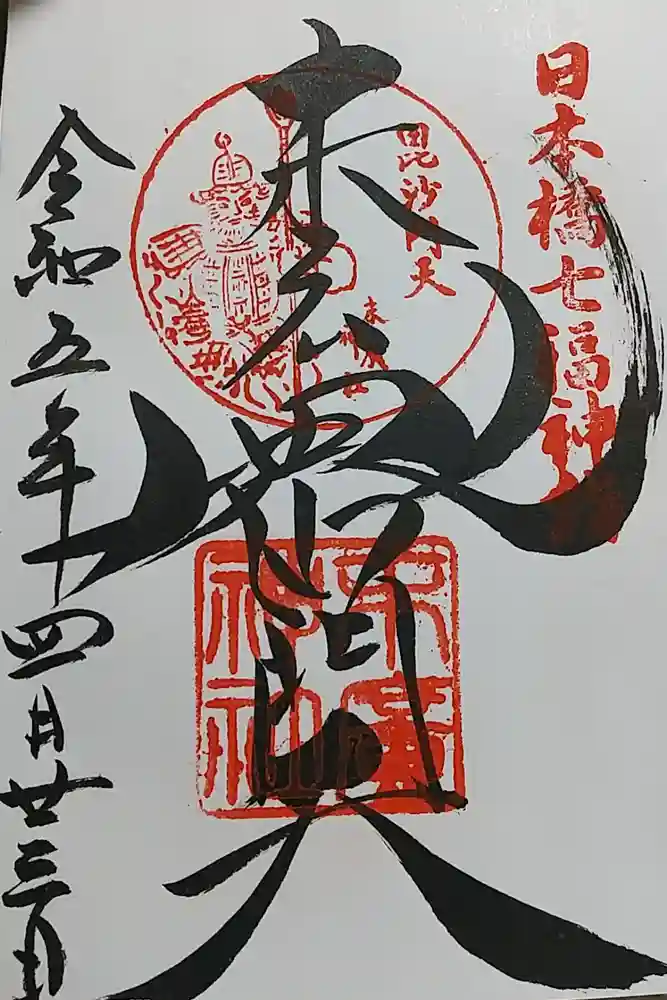 日本橋七福神
毘沙門天
末廣神社
末廣
毘沙門天
末廣神社
令和五年四月廿三日